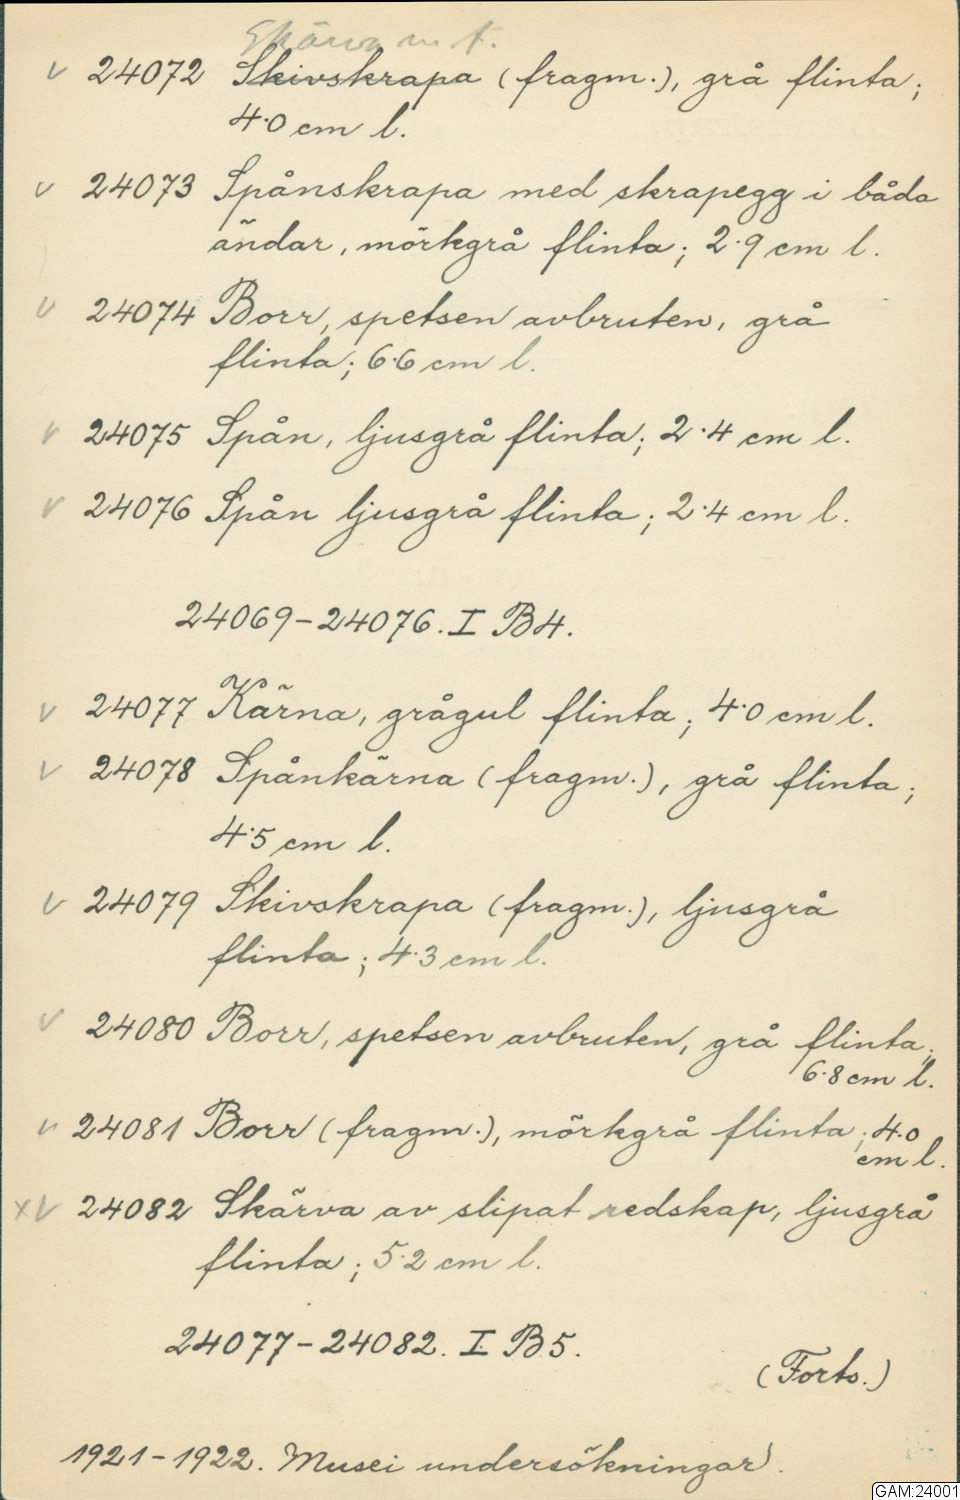 Skärva m. f.
v 24072 Skivskrapa (fragm.), grå flinta;
4.0 cm l.
v 24073 Spånskrapa med skrapegg i båda
ändar, mörkgrå flinta; 2.9 cm l.
v 24074 Borr, spetsen avbruten, grå
flinta; 6.6 cm l.
v 24075 Spån, ljusgrå flinta; 2.4 cm l.
v 24076 Spån ljusgrå flinta; 2.4 cm l.
24069-24076. I B4.
v 24077 Kärna, grågul flinta; 4.0 cm l.
v 24078 Spånkärna (fragm.), grå flinta;
4.5 cm l.
v 24079 Skivskrapa (fragm.), ljusgrå
flinta; 4.3 cm l.
v 24080 Borr, spetsen avbruten, grå flinta;
6.8 cm l.
v 24081 Borr (fragm.), mörkgrå flinta; 4.0
cm l.
x v 24082 Skärva av slipat redskap, ljusgrå
flinta; 5.2 cm l.
24077-24082. I B5.
(Forts.)
1921-1922. Musei undersökningar.
GAM:24001